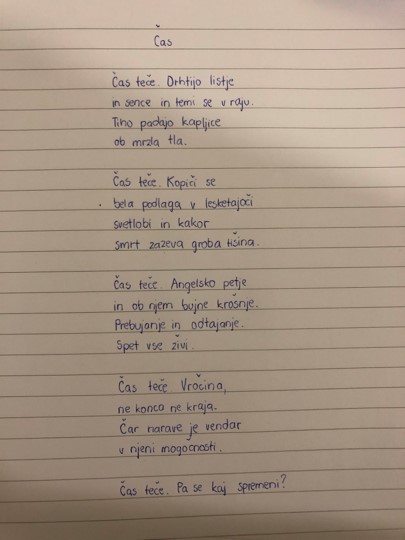 Čas
Čas teče. Drhtijo listje
in sence in temi se v raju.
Tiho padajo kapljice
ob mrzla tla.
Čas teče. Kopiči se
bela podlaga v lesketajoči
svetlobi in kakor
smrt zazeva groba tišina.
Čas teče. Angelsko petje
in ob njem bujne krošnje.
Prebujanje in odtajanje.
Spet vse živi.
Čas teče. Vročina,
ne konca ne kraja.
Čar narave je vendar
v njeni mogočnosti.
Čas teče. Pa se kaj spremeni?